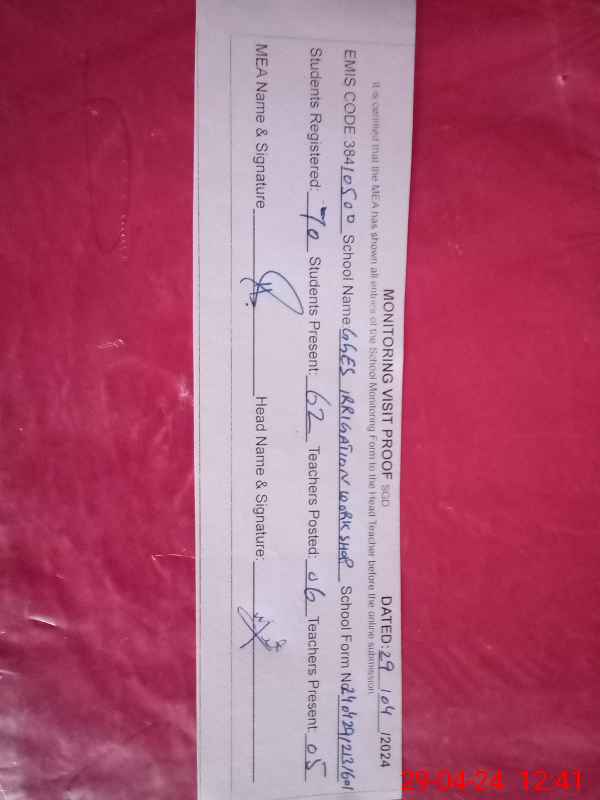 MONITORING VISIT PROOF SGD DATED: 29 / 04 /2024
It is certified that the MEA has shown all entries of the School Monitoring Form to the Head Teacher before the online submission
EMIS CODE 38410500 School Name GGES IRRIGATION WORKSHOP School Form No 240429/213/601
Students Registered: 70 Students Present: 62 Teachers Posted: 06 Teachers Present: 05
MEA Name & Signature Head Name & Signature:
29-04-24 12:41